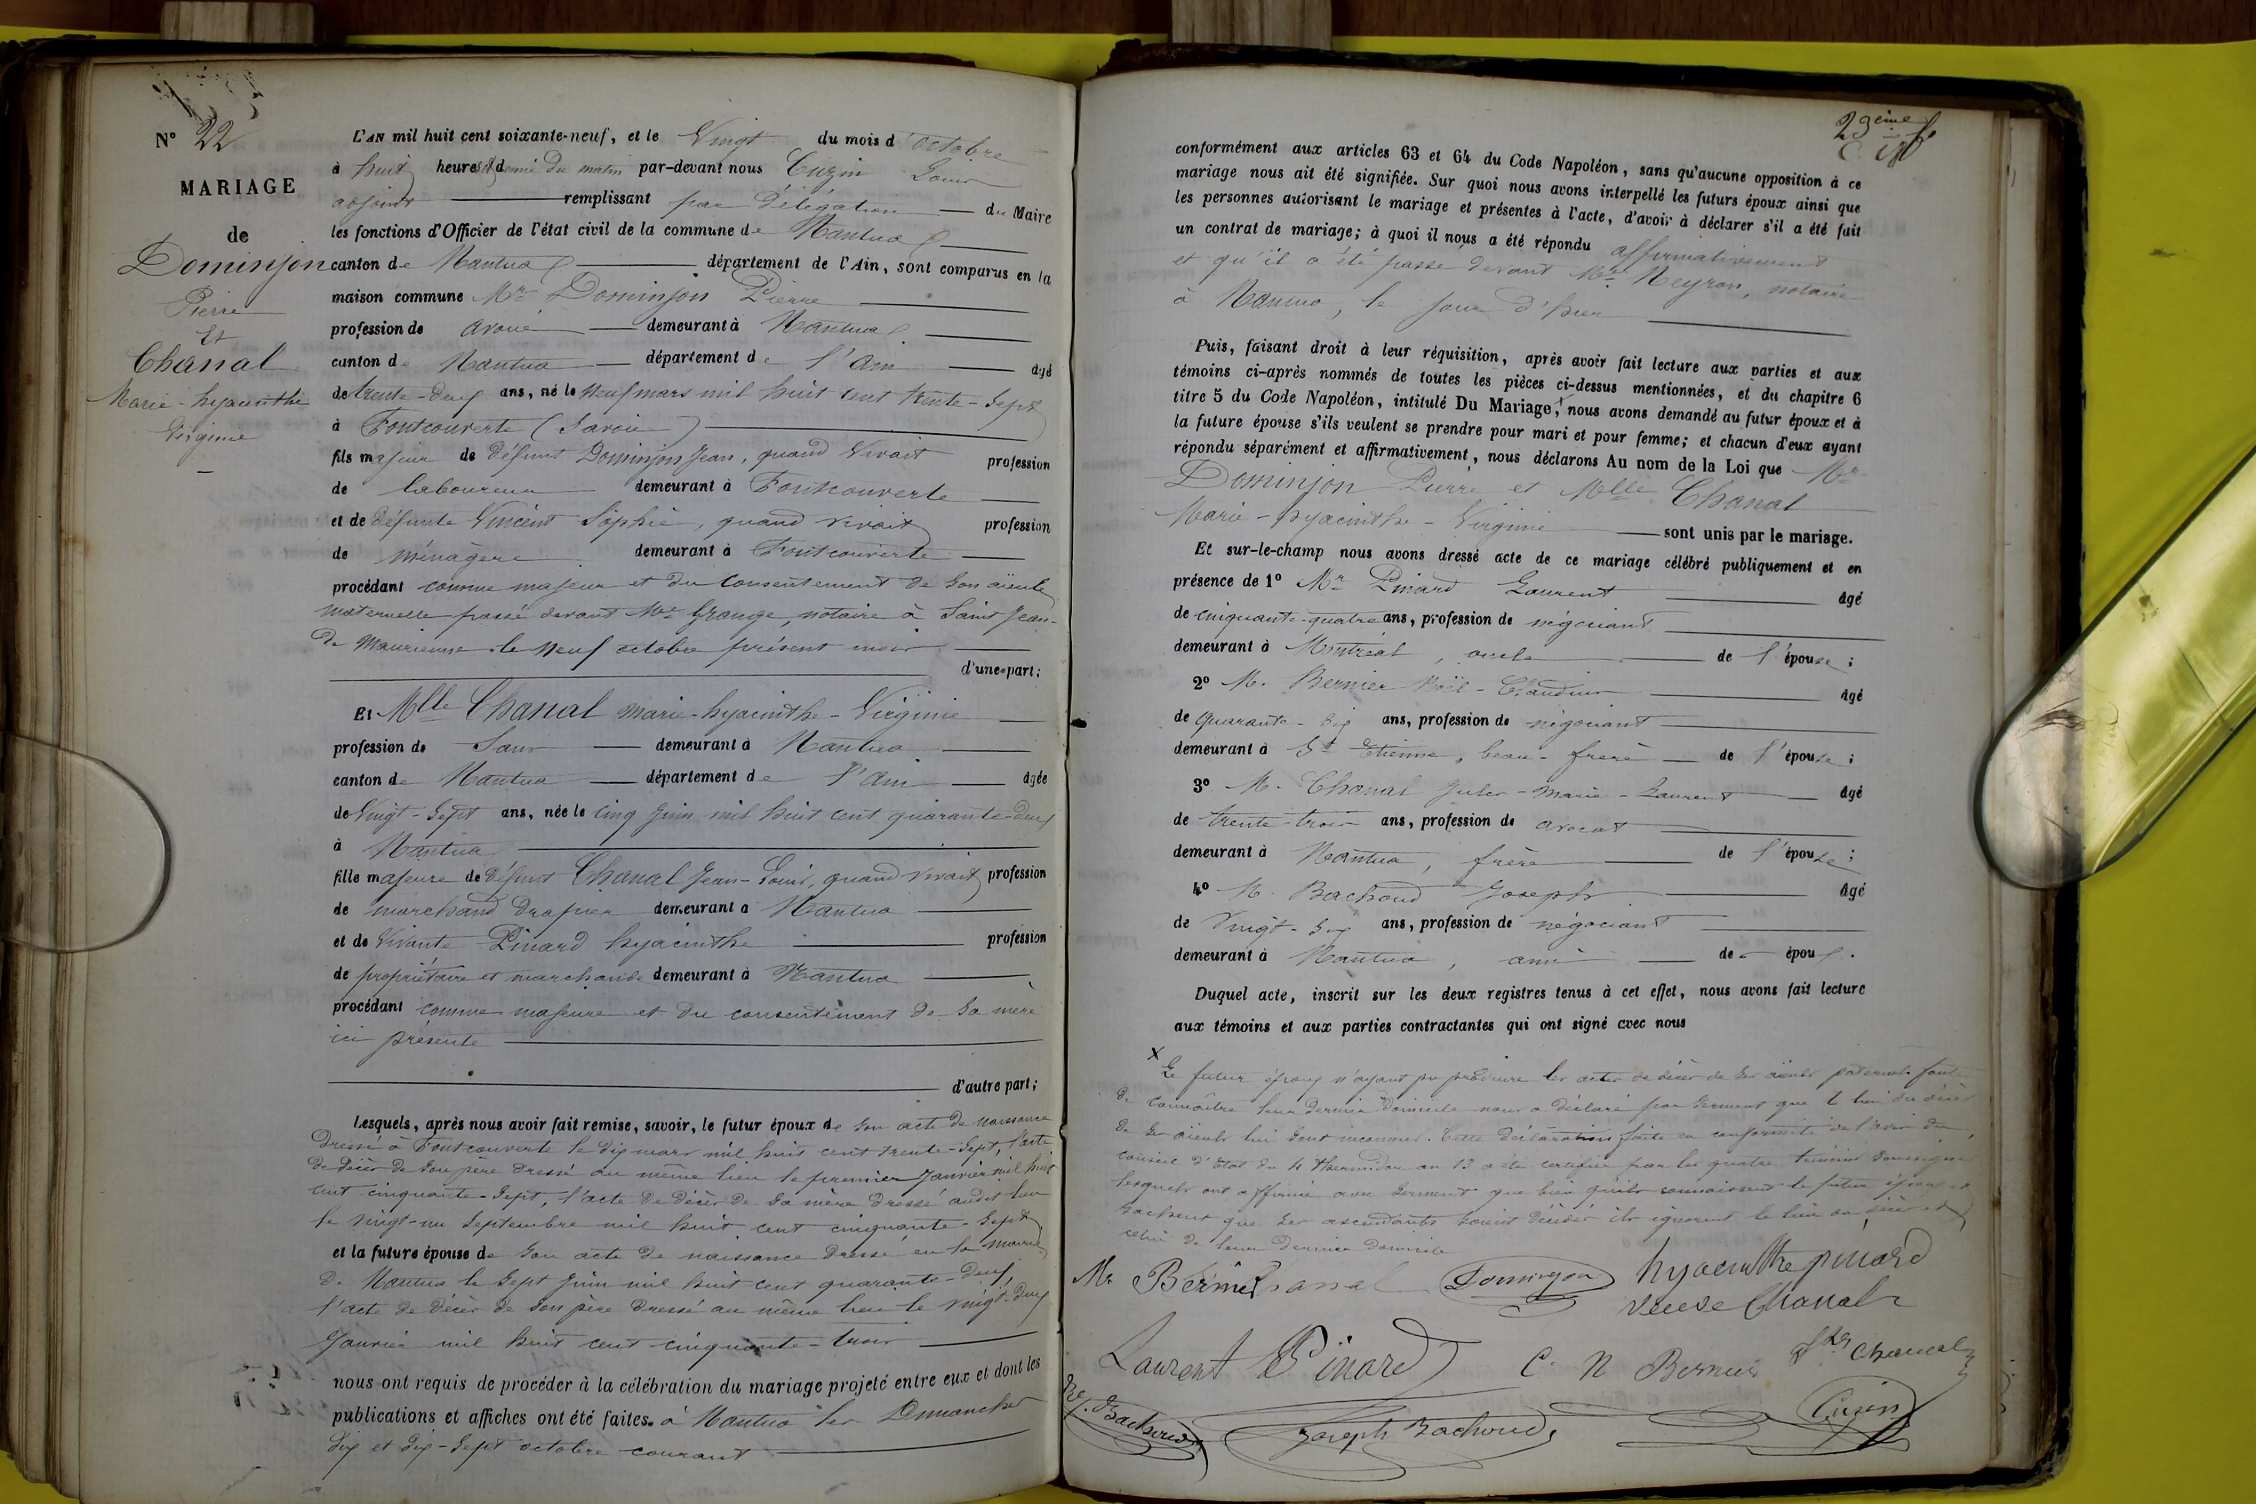 N° 22
MARIAGE
de
Dominjon
Pierre
Et
Chanal
Marie-hyacinthe
Virginie
L'AN mil huit cent soixante-neuf, et le Vingt du mois d'octobre
à huit heures et demi du matin par-devant nous Cuzin Louis
adjoint remplissant par délégation du Maire
les fonctions d'Officier de l'état civil de la commune de Nantua
canton de Nantua département de l'Ain, sont comparus en la
maison commune Mr Dominjon Pierre
profession de avoué demeurant à Nantua
canton de Nantua département de l'Ain âgé
de trente-deux ans, né le neuf mars mil huit cent trente-sept
à Fontcouverte (Savoie)
fils majeur de défunt Dominjon Jean, quand vivait profession
de laboureur demeurant à Fontcouverte
et de défunte Vincent Sophie, quand vivait profession
de ménagère demeurant à Fontcouverte
procédant comme majeur et du consentement de son aïeule
maternelle passé devant Me Grange, notaire à Saint Jean-
de Maurienne le neuf octobre présent mois
d'une part;
Et Mlle Chanal marie-hyacinthe-Virginie
profession de Sans demeurant à Nantua
canton de Nantua département de l'Ain âgée
de Vingt-Sept ans, née le cinq Juin mil huit cent quarante-deux
à Nantua
fille majeure de défunt Chanal Jean-Louis, quand vivait profession
de marchand drapier demeurant à Nantua
et de vivante Pinard hyacinthe profession
de propriétaire et marchande demeurant à Nantua
procédant comme majeure et du consentement de sa mère
ici présente
d'autre part;
Lesquels, après nous avoir fait remise, savoir, le futur époux de son acte de naissance
dressé à Fontcouverte le dix mars mil huit cent trente-Sept, l'acte
de décès de son père dressé au même lieu le premier Janvier mil huit
cent cinquante-Sept, l'acte de décès de sa mère dressé audit lieu
le vingt-un Septembre mil huit cent cinquante-Sept,
et la future épouse de son acte de naissance dressé en la mairie
de Nantua le Sept Juin mil huit cent quarante-deux,
l'acte de décès de son père dressé au même lieu le vingt-deux
Janvier mil huit cent cinquante-trois
nous ont requis de procéder à la célébration du mariage projeté entre eux et dont les
publications et affiches ont été faites à Nantua les Dimanches
dix et dix-Sept octobre courant
29ème fo
conformément aux articles 63 et 64 du Code Napoléon, sans qu'aucune opposition à ce
mariage nous ait été signifiée. Sur quoi nous avons interpellé les futurs époux ainsi que
les personnes autorisant le mariage et présentes à l'acte, d'avoir à déclarer s'il a été fait
un contrat de mariage; à quoi il nous a été répondu affirmativement
et qu'il a été passé devant Me Neyron, notaire
à Nantua, le jour d'hier
Puis, faisant droit à leur réquisition, après avoir fait lecture aux parties et aux
témoins ci-après nommés de toutes les pièces ci-dessus mentionnées, et du chapitre 6
titre 5 du Code Napoléon, intitulé Du Mariage, x nous avons demandé au futur époux et à
la future épouse s'ils veulent se prendre pour mari et pour femme; et chacun d'eux ayant
répondu séparément et affirmativement, nous déclarons Au nom de la Loi que Mr
Dominjon Pierre et Mlle Chanal
Marie-hyacinthe-Virginie sont unis par le mariage.
Et sur-le-champ nous avons dressé acte de ce mariage célébré publiquement et en
présence de 1° Mr Pinard Laurent âgé
de cinquante-quatre ans, profession de négociant
demeurant à Montréal, oncle de l'épouse;
2° M. Bernier Noël-Claudius âgé
de quarante-Six ans, profession de négociant
demeurant à St Etienne, beau-frère de l'épouse;
3° M. Chanal Jules-Marie-Laurent âgé
de trente-trois ans, profession de avocat
demeurant à Nantua, frère de l'épouse;
4° M. Bachoud Joseph âgé
de Vingt-Six ans, profession de négociant
demeurant à Nantua, ami de époux.
Duquel acte, inscrit sur les deux registres tenus à cet effet, nous avons fait lecture
aux témoins et aux parties contractantes qui ont signé avec nous
x Le futur époux n'ayant pu produire les actes de décès de ses aïeuls paternels faute
de connaître leur dernier domicile nous a déclaré par serment que le lieu du décès
de ses aïeuls lui sont inconnus. Cette déclaration faite en conformité de l'avis du
conseil d'Etat du 4 thermidor an 13 a été certifiée par les quatre témoins soussignés
lesquels ont affirmé avec serment que bien qu'ils connaissent le futur époux et
sachent que ses ascendants soient décédés ils ignorent le lieu du décès et
celui de leur dernier domicile
Chanal Dominjon hyacinthe pinard
veuve Chanal
Laurent Pinard C. N Bernier Jles Chanal
Bachoud Joseph Bachoud Cuzin